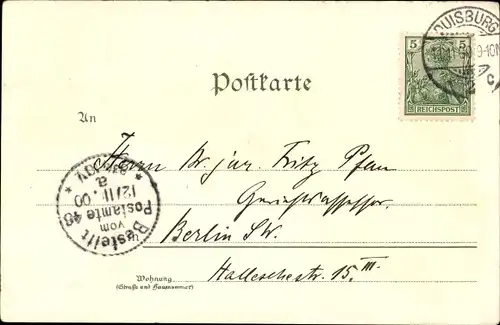 DUISBURG
5 5
REICHSPOST
Postkarte
An
Herrn Dr. jur. Fritz Pfau
Gerichtsassessor.
Berlin SW.
Hallesche str. 15. III.
Bestellt
vom
Postamte 48
12/11.00
Wohnung
(Straße und Hausnummer)